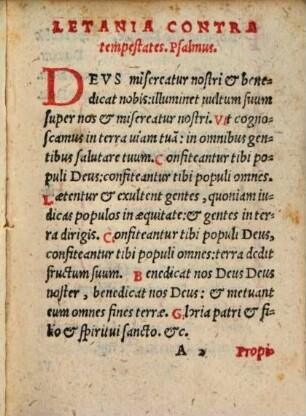 LETANIA CONTRA
tempestates. Psalmus.
DEVS misereatur nostri & bene⸗
dicat nobis: illuminet uultum suum
super nos & misereatur nostri. Vt cogno⸗
scamus in terra uiam tuã: in omnibus gen⸗
tibus salutare tuum. Confiteantur tibi po⸗
puli Deus: confiteantur tibi populi omnes.
Lætentur & exultent gentes, quoniam iu⸗
dicas populos in æquitate: & gentes in ter⸗
ra dirigis. Confiteantur tibi populi Deus,
confiteantur tibi populi omnes: terra dedit
fructum suum. Benedicat nos Deus Deus
noster, benedicat nos Deus: & metuant
eum omnes fines terræ. Gloria patri & fi⸗
lio & spiritui sancto. &c.
A 2 Propi⸗